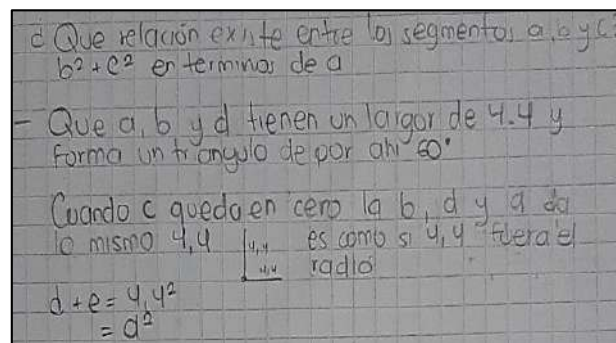 ¿ Que relación existe entre los segmentos a, b y c:
b² + c² en terminos de a
- Que a, b y d tienen un largor de 4.4 y
forma un triangulo de por ahi 60°
Cuando c queda en cero la b, d y a da
lo mismo 4,4 4,4 4,4 es como si 4,4 fuera el
radio
d + e = 4,4²
= d²